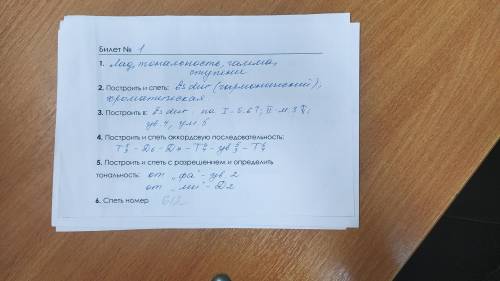 Билет № 1
1. Лад, тональность, гамма,
ступени
2. Построить и спеть: Es dur (гармонический),
хроматическая
3. Построить в: Es dur на I - Б.6↑; II - м.3
ув.4, ум.5
4. Построить и спеть аккордовую последовательность:
5. Построить и спеть с разрешением и определить
тональность: от "фа" - ув.2
от "ми" - D2
6. Спеть номер 612